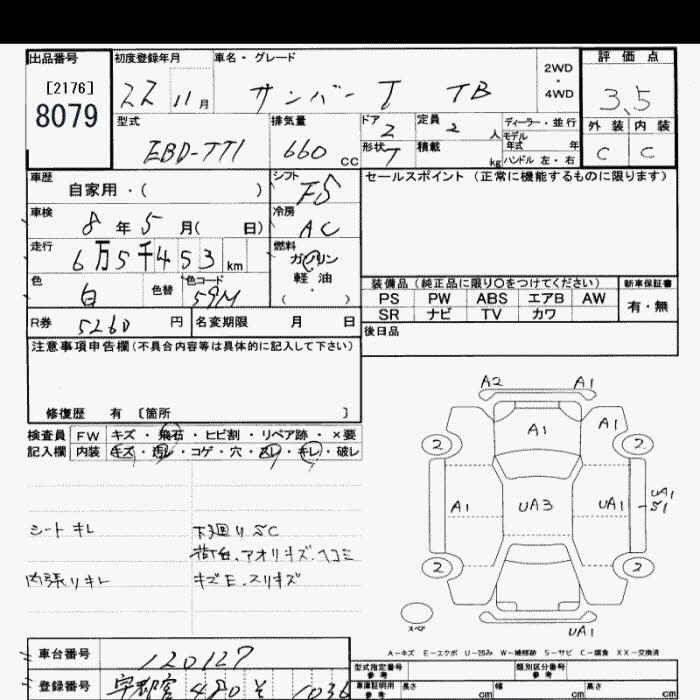 出品番号 初度登録年月 車名・グレード 2WD ・ 4WD 評価点
[2176]
8079
22 11月 サンバー T TB 3.5
型式 排気量 ドア 定員 ディーラー・並行 外装 内装
EBD-TT1 660 cc 2 2 人 モデル年式 年 C C
形状 T 積載 kg ハンドル 左・右
車歴 自家用・( ) シフト F5 セールスポイント (正常に機能するものに限ります)
車検 8年5月( 日) 冷房 AC
走行 6万5千453 km 燃料 ガソリン・軽油・( )
色 白 色替 色コード 59M
装備品 (純正品に限り○をつけてください) 新車保証書
PS PW ABS エアB AW 有・無
SR ナビ TV カワ
R券 5260 円 名変期限 月 日
後日品
注意事項申告欄(不具合内容等は具体的に記入して下さい)
修復歴 有 〔箇所 〕
検査員 FW キズ・飛石・ヒビ割・リペア跡・×要
記入欄 内装 キズ・汚レ・コゲ・穴・スレ・キレ・破レ
シートキレ 下廻りSC
荷台、アオリキズ、ヘコミ
内張りキレ キズE、スリキズ
A2 A1
A1 A1
2 2
A1 UA3 UA1 UA1
S1
2 2
スペア UA1
A-キズ E-エクボ U-凹み W-補修跡 S-サビ C-腐食 XX-交換済
車台番号 120127
型式指定番号 参考 類別区分番号 参考
登録番号 宇都宮 480 そ 1036
車庫証明用 参考 長さ cm 幅 cm 高さ cm